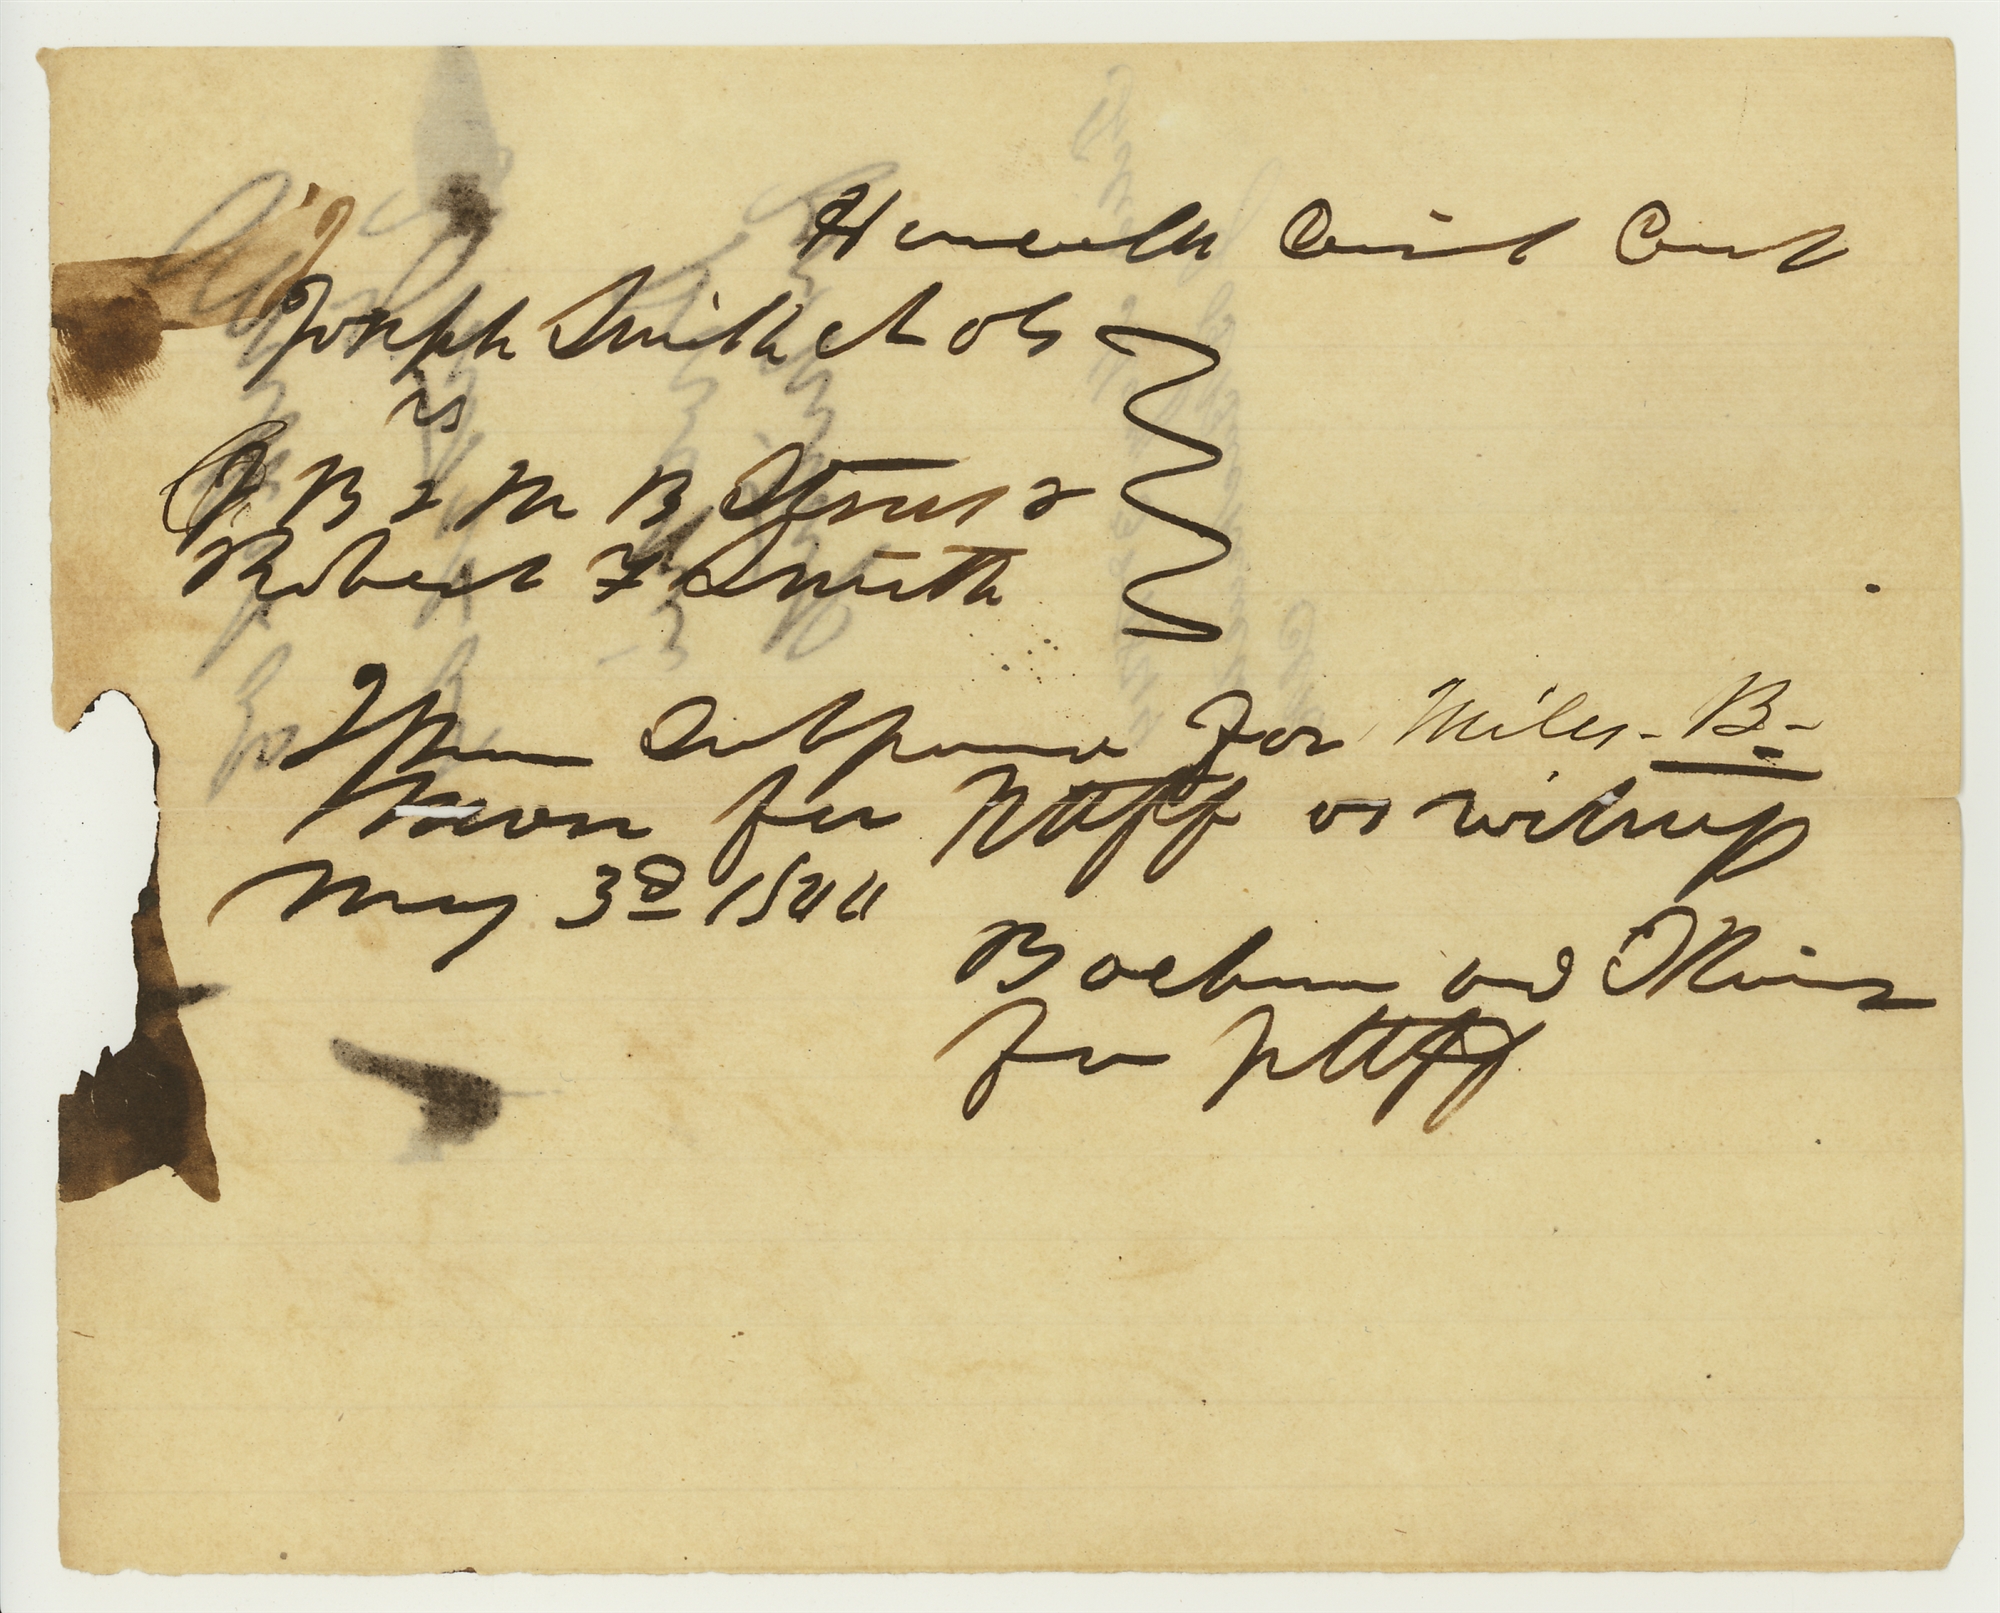 Hancock Circuit Court
Joseph Smith et als
vs
C B & M B Street &
Robert F Smith
Issue Subpoena for Miles - B -
for Pltff as witness
May 3d 1844
Bachman and Skinner
for pltff